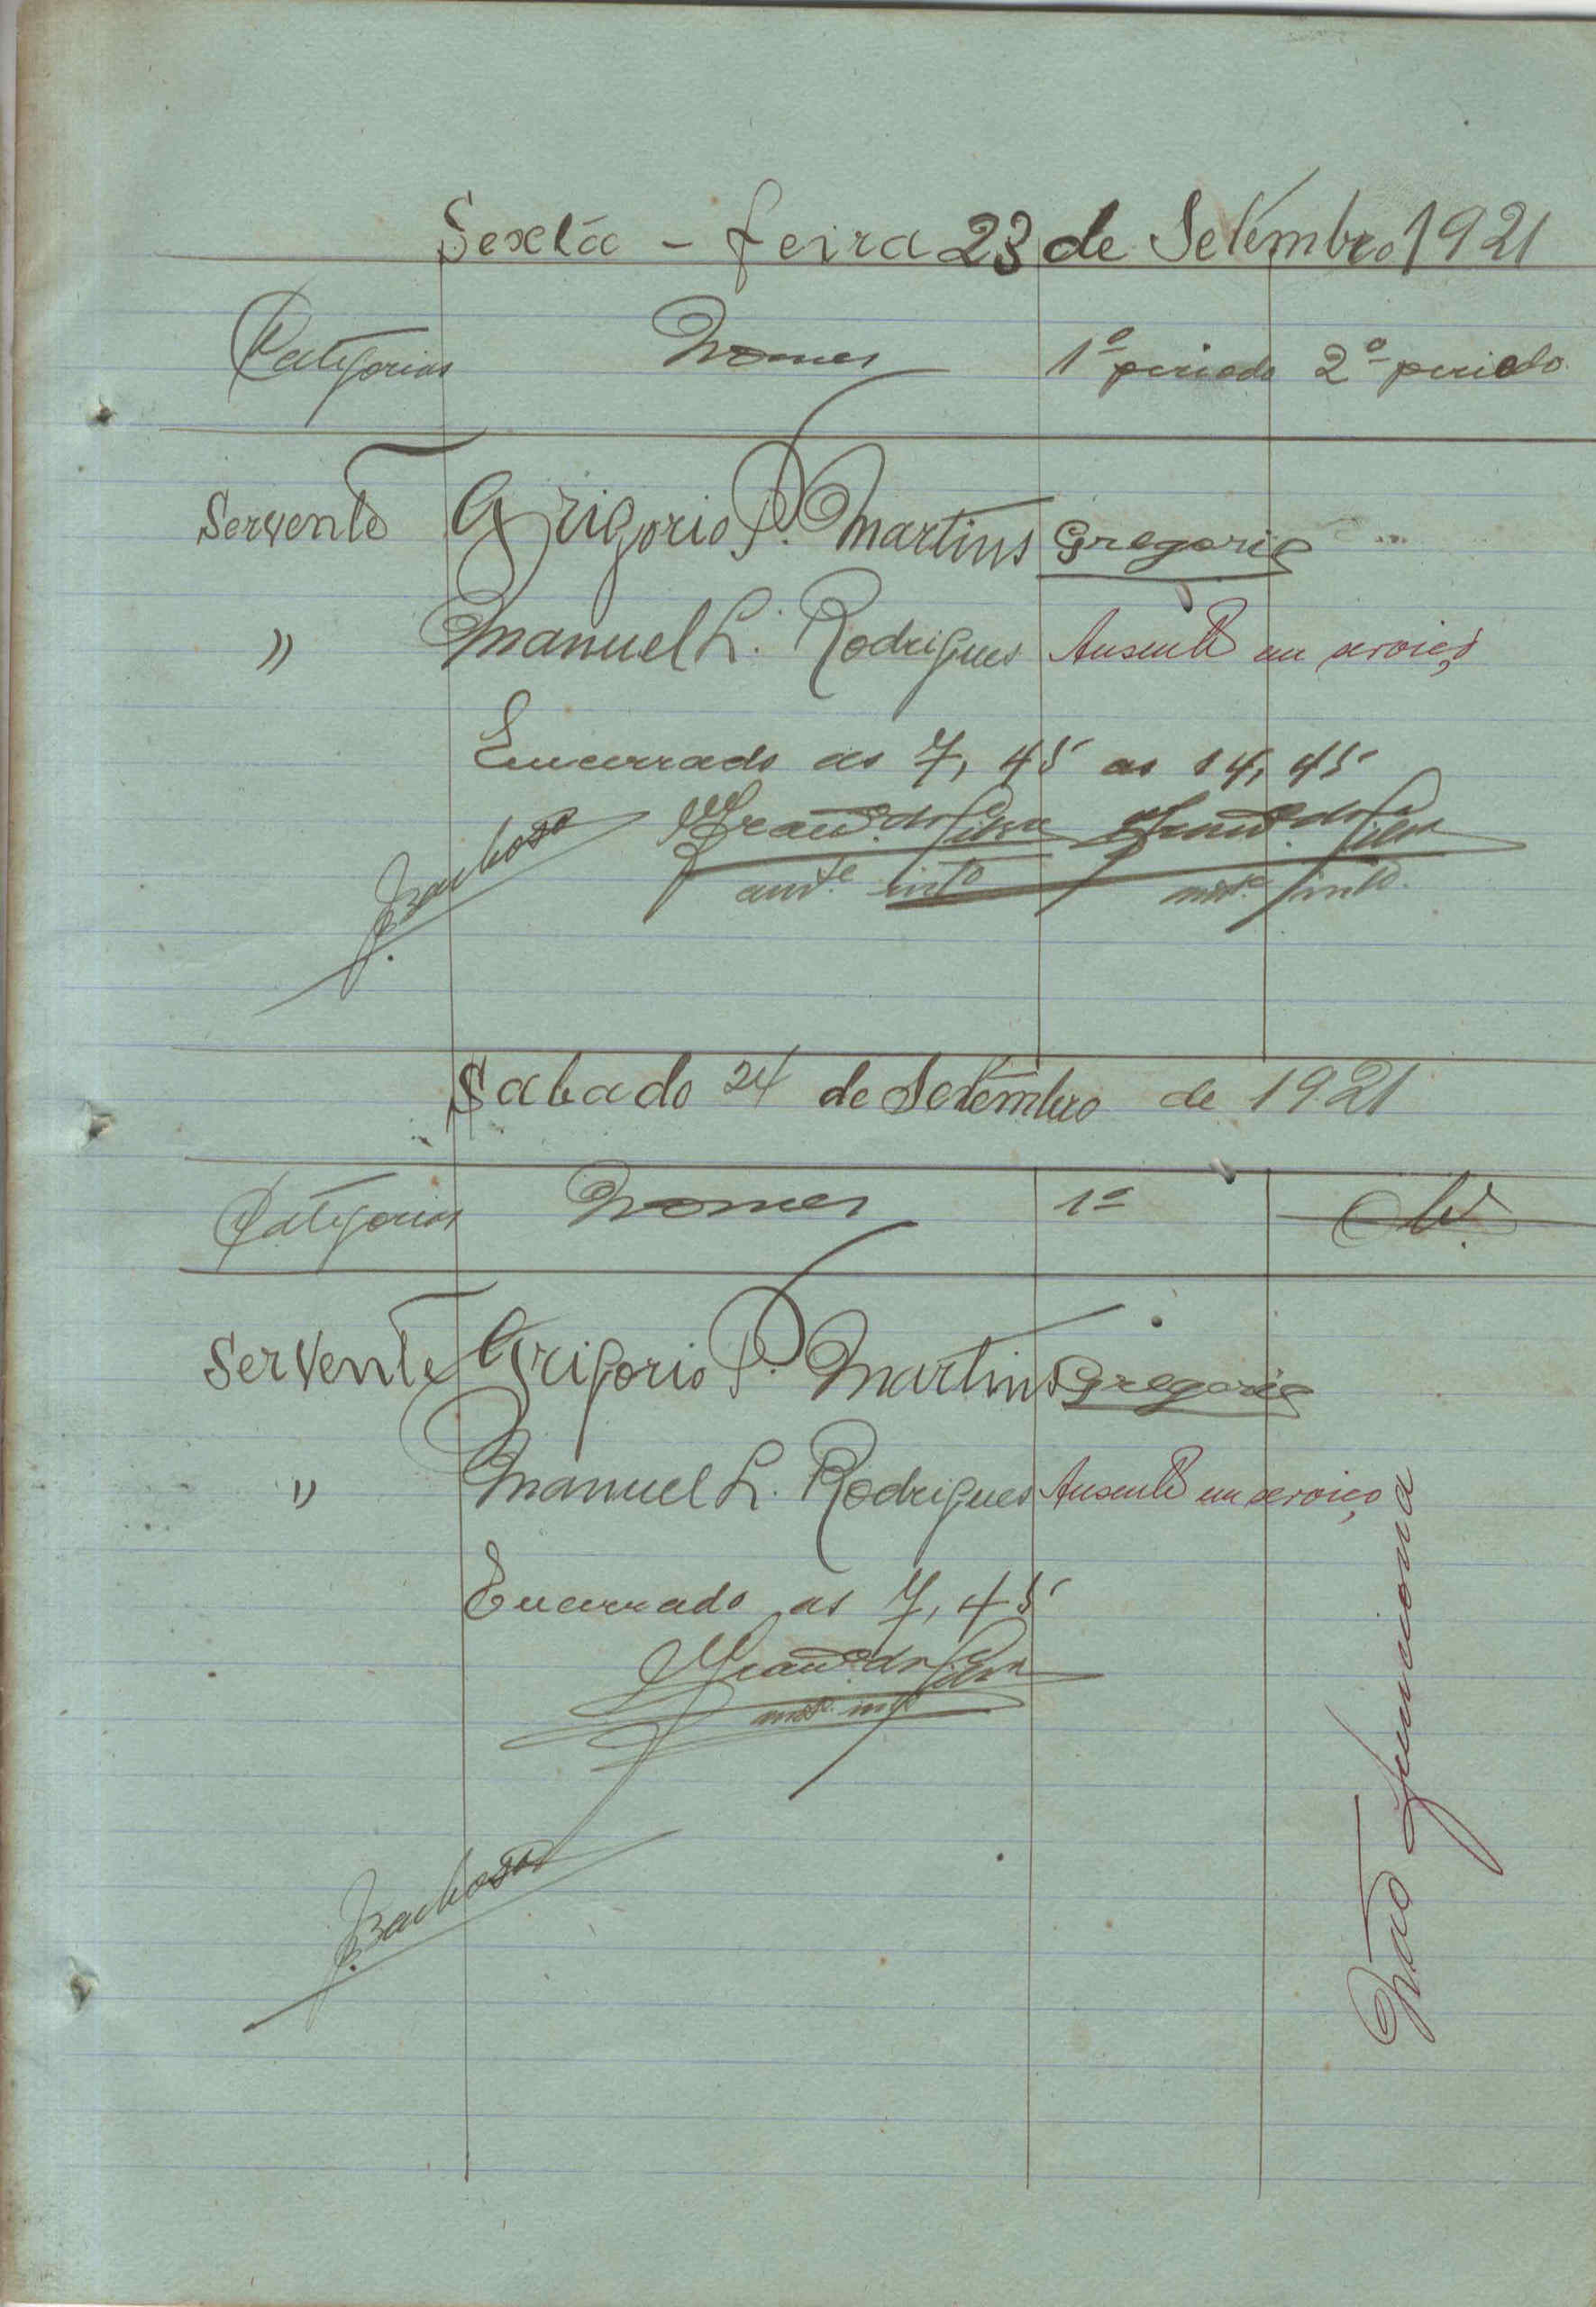 Sexta - feira 23 de Setembro 1921
Categorias Nomes 1º periodo 2º periodo
Servente Grigorio P. Martins Gregorio
" Manuel L. Rodrigues Ausente em serviço
Encerrado as 7,45 as 14,45
Barbosa
Sabado 24 de Setembro de 1921
Categorias Nomes 1º
Servente Grigorio P. Martins Gregorio
" Manuel L. Rodrigues Ausente em serviço
Encerrado as 7,45
Barbosa
Não funciona